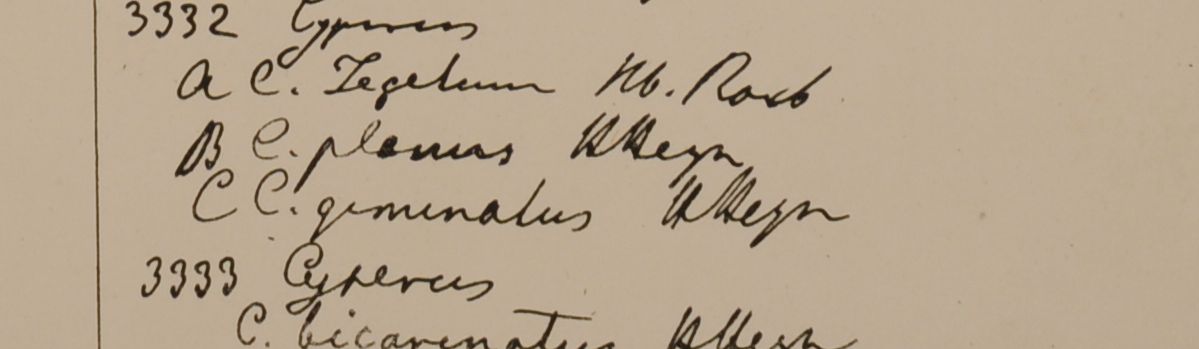 3332 Cyperus
A C. Tegetum Hb. Roxb
B C. planus HHeyn
C C. geminatus HHeyn
3333 Cyperus
C. bicarinatus HHeyn